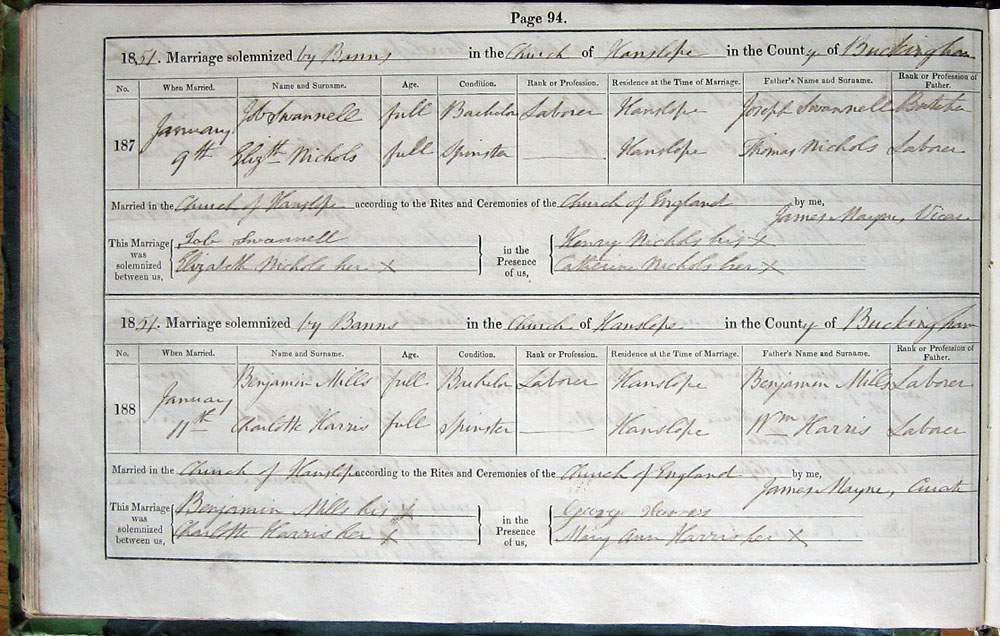 Page 94.
1851. Marriage solemnized by Banns in the Church of Hanslope in the County of Buckingham
No. When Married. Name and Surname. Age. Condition. Rank or Profession. Residence at the Time of Marriage. Father's Name and Surname. Rank or Profession of Father.
187 January 9th Job Swannell full Bachelor Laborer Hanslope Joseph Swannell
Elizth Nichols full Spinster Hanslope Thomas Nichols Laborer
Married in the Church of Hanslope according to the Rites and Ceremonies of the Church of England by me,
James Mayne, Vicar
This Marriage was solemnized between us, Job Swannell in the Presence of us, Henry Nichols his X
Elizabeth Nichols her X Catherine Nichols her X
1851. Marriage solemnized by Banns in the Church of Hanslope in the County of Buckingham
No. When Married. Name and Surname. Age. Condition. Rank or Profession. Residence at the Time of Marriage. Father's Name and Surname. Rank or Profession of Father.
188 January 11th Benjamin Mills full Bachelor Laborer Hanslope Benjamin Mills Laborer
Charlotte Harris full Spinster Hanslope Wm Harris Laborer
Married in the Church of Hanslope according to the Rites and Ceremonies of the Church of England by me,
James Mayne, Curate
This Marriage was solemnized between us, Benjamin Mills his X in the Presence of us, George
Charlotte Harris her X Mary Ann Harris her X